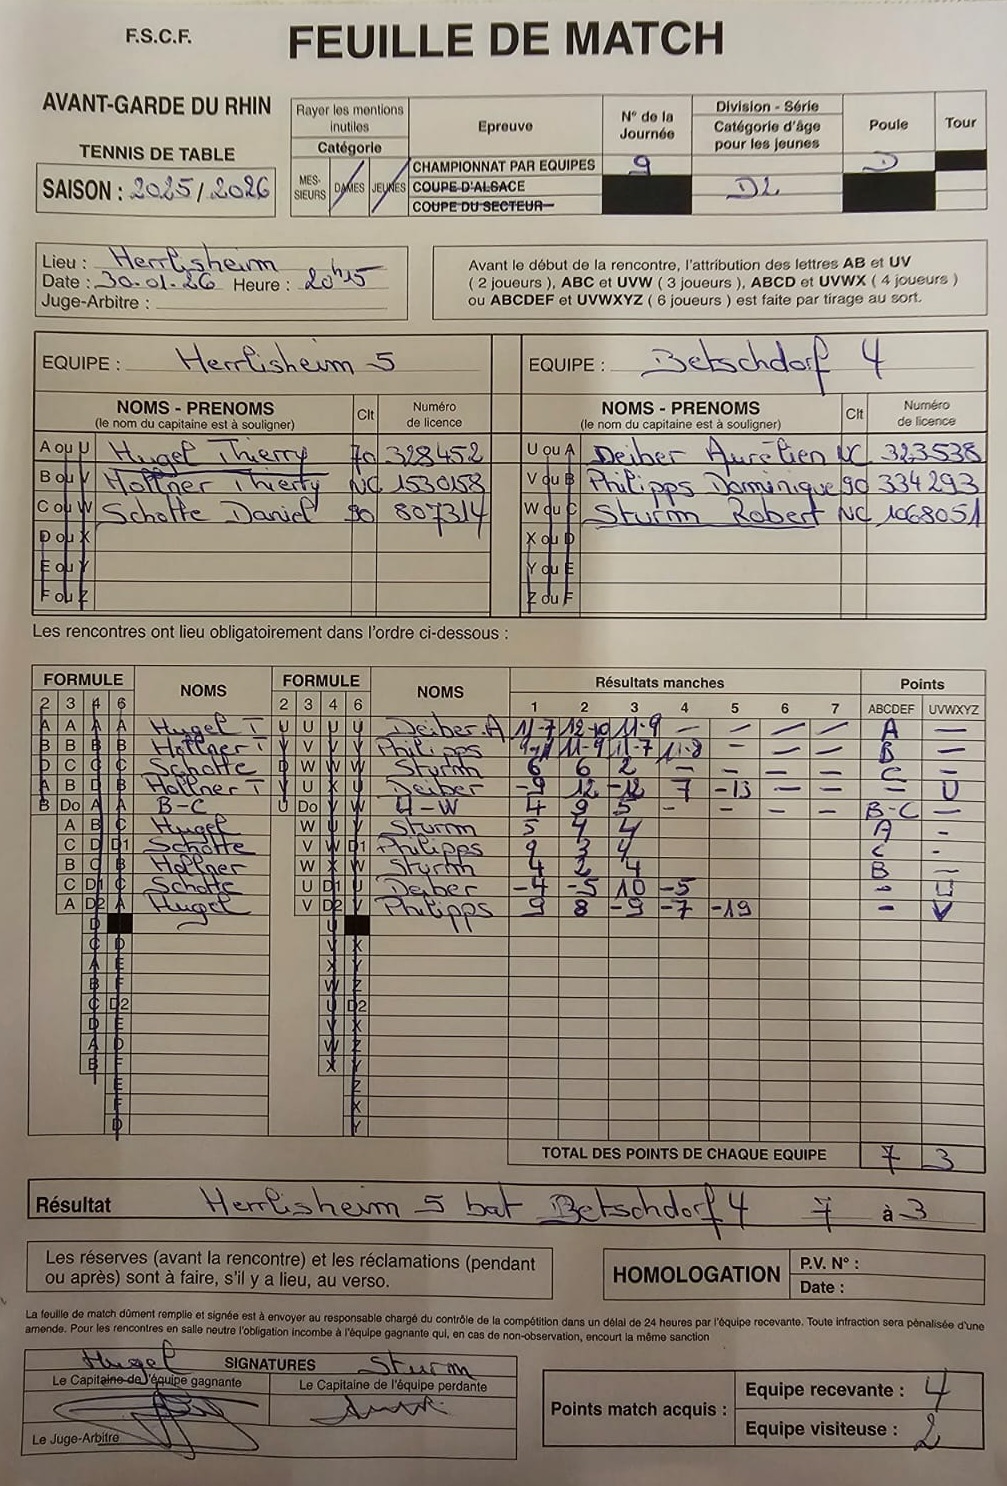 F.S.C.F.
FEUILLE DE MATCH
AVANT-GARDE DU RHIN
TENNIS DE TABLE
SAISON : 2025/2026
Rayer les mentions inutiles
Catégorie
MES-SIEURS DAMES JEUNES
Epreuve
CHAMPIONNAT PAR EQUIPES
COUPE D'ALSACE
COUPE DU SECTEUR
N° de la Journée
9
Division - Série
Catégorie d'âge pour les jeunes
D2
Poule
D
Tour
Lieu : Herrlisheim
Date : 30.01.26 Heure : 20h15
Juge-Arbitre :
Avant le début de la rencontre, l'attribution des lettres AB et UV
( 2 joueurs ), ABC et UVW ( 3 joueurs ), ABCD et UVWX ( 4 joueurs )
ou ABCDEF et UVWXYZ ( 6 joueurs ) est faite par tirage au sort.
EQUIPE : Herrlisheim 5
EQUIPE : Betschdorf 4
NOMS - PRENOMS Clt Numéro
(le nom du capitaine est à souligner) de licence
NOMS - PRENOMS Clt Numéro
(le nom du capitaine est à souligner) de licence
A ou U Hugel Thierry 70 328452
U ou A Deiber Aurélien NC 323538
B ou V Hollner Thierry NC 1530158
V ou B Philipps Dominique 90 334293
C ou W Schotte Daniel 90 807314
W ou C Sturm Robert NC 1068051
D ou X
X ou D
E ou Y
Y ou E
F ou Z
Z ou F
Les rencontres ont lieu obligatoirement dans l'ordre ci-dessous :
FORMULE NOMS FORMULE NOMS Résultats manches Points
2 3 4 6 2 3 4 6 1 2 3 4 5 6 7 ABCDEF UVWXYZ
A A A A Hugel T U U U U Deiber.A 11-7 12-10 11-9 - - - - A -
B B B B Hollner T V V V V Philipps 11-9 11-7 11-8 - - - B -
D C C C Schotte D W W W Sturm 6 6 2 - - - - C -
A B D B Hollner T V U X U Deiber -9 12 -12 7 -13 - - - U
B Do A A B-C U Do V W U-W 4 9 5 - - - - B-C -
A B C Hugel W U V Sturm 5 4 4 A -
C D D1 Schotte V W D1 Philipps 9 3 4 C -
B C B Hollner W X W Sturm 4 2 4 B -
C D1 C Schotte U D1 U Deiber -4 -5 10 -5 - U
A D2 A Hugel V D2 V Philipps 9 8 -9 -7 -19 - V
D U
C D V X
A E X Y
B F W Z
C D2 U D2
D E V X
A D W Z
B F X Y
E Z
F X
D Y
TOTAL DES POINTS DE CHAQUE EQUIPE 7 3
Résultat Herrlisheim 5 bat Betschdorf 4 7 à 3
Les réserves (avant la rencontre) et les réclamations (pendant
ou après) sont à faire, s'il y a lieu, au verso.
HOMOLOGATION
P.V. N° :
Date :
La feuille de match dûment remplie et signée est à envoyer au responsable chargé du contrôle de la compétition dans un délai de 24 heures par l'équipe recevante. Toute infraction sera pénalisée d'une
amende. Pour les rencontres en salle neutre l'obligation incombe à l'équipe gagnante qui, en cas de non-observation, encourt la même sanction
Hugel SIGNATURES Sturm
Le Capitaine de l'équipe gagnante Le Capitaine de l'équipe perdante
Le Juge-Arbitre
Points match acquis :
Equipe recevante : 4
Equipe visiteuse : 2